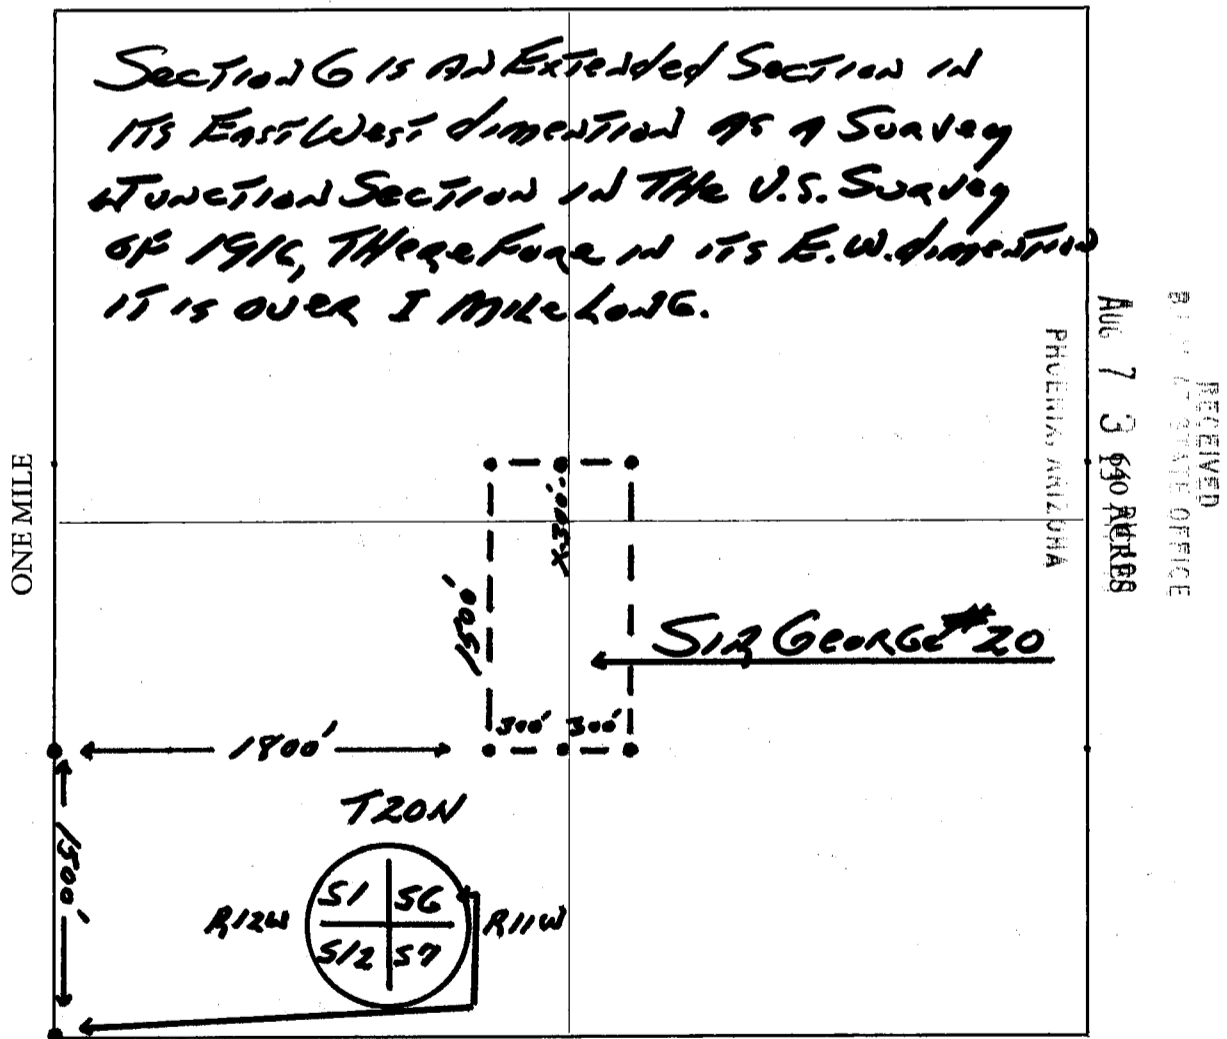 Section 6 is AN Extended Section in
its East West dimention AS A Survey
Junction Section in THe U.S. Survey
oF 1916, THereFore in its E.W. dimention
it is over 1 Mile Long.
ONE MILE
RECEIVED
STATE OFFICE
AUG 7 3
PHOENIX, ARIZONA
640 ACRES
X-300'
1500'
Sir George #20
300' 300'
1800'
1500'
T20N
R12W S1 S6 R11W
S12 S7